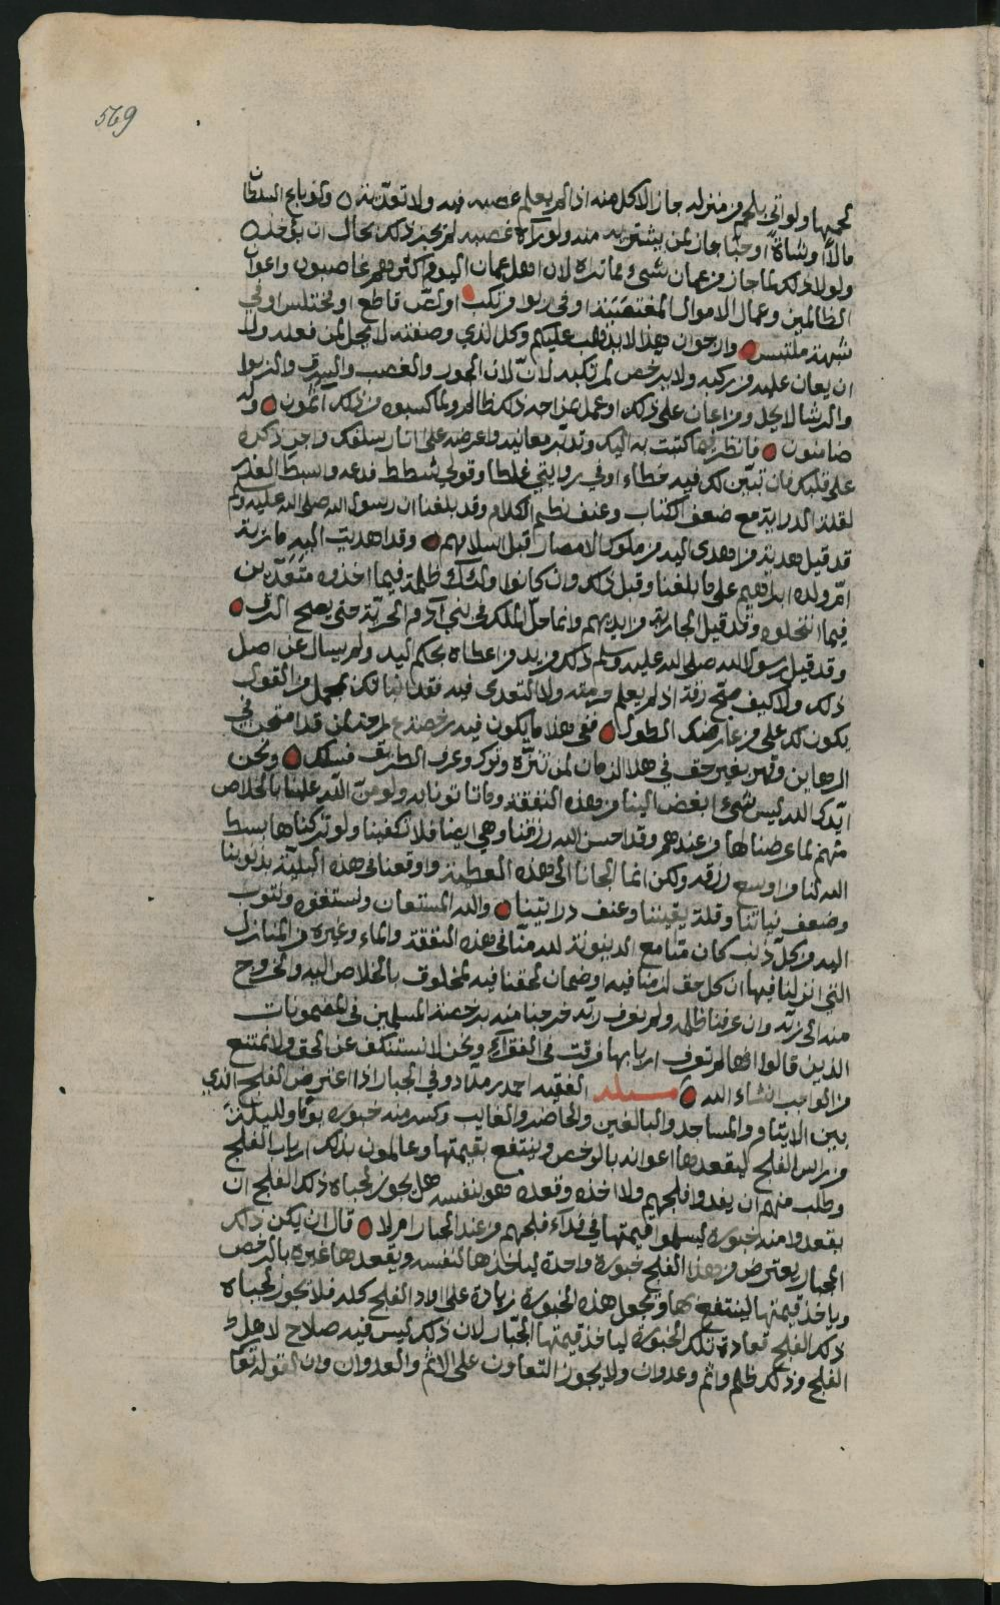 569
لحمها ولو اتى بلحم من منزله جاز الاكل منه اذا لم يعلم غصبه فيه ولا تعديه ه ولو باع السلطان
مالا او شاة او حبا جاز لمن يشتريه منه ولو رآه غصبه لم يجز ذلك بحال ان يأخذه
ولولا ذلك لما جاز من عمان شيء مما نراه لان اهل عمان اليوم اكثرهم غاصبون واعوان
الظالمين وعمال الاموال المغتصبة او في ربوا مرتكب او لص قاطع او مختلس او في
شبهة ملتبس وارجو ان هذا لا يذهب عليكم وكل الذي وصفته لا يحل لمن فعله ولا
ان يعان عليه من ركبه ولا يرخص لمرتكبه لان الجور والغصب والسرق والربوا
والرشا لا يحل ومن اعان على ذلك او عمل به احد ذلك ظالم ولما كسبوه من ذلك آثمون وله
ضامنون فانظر فيما كتبت به اليك وتدبر معانيه واعرضه على اثار سلفك واجر ذكره
على قلبك فان تبين لك فيه خطاء او في روايتي غلطا وقولي شطط فدعه وابسط العذر
لقلة الدراية مع ضعف الكتاب وعنف نظم الكلام وقد بلغنا ان رسول الله صلى الله عليه وسلم
قد قبل هدية من اهدى اليه من ملوك الامصار قبل اسلامهم وقد اهديت اليه مارية
ام ولده ابراهيم على ما بلغنا وقبل ذلك وان كانوا اولئك ظلمة فيما اخذوه متعدين
فيما انتحلوه وقد قبل الجارية من ايديهم وانما حل الملك في بني آدم الحرية حتى يصح الرق
وقد قبل رسول الله صلى الله عليه وسلم ذلك من يد من اعطاه بحكم اليد ولم يسأل عن اصل
ذلك ولا كيف صح رقه اذ لم يعلم حرمته ولا التعدي فيه فقد
يكون لك على من عارضك الطول ففي هذا ما يكون فيه رخصة لمن قد امتحن في
الرهاين وقهر بغير حق في هذا الزمان لمن تنزه وترك وعرف الطريق فسلك ونحن
ايدك الله ليس شيء ابغض الينا من هذه النفقة وما تاتونا به ولو من الله علينا بالخلاص
منهم لما عرضنا لها من عندهم وقد احسن الله رزقنا وهي ايضا فلا تكفينا ولو تركناها بسط
الله لنا من اوسع رزقه ولكن انما الجانا الى هذه العطية واوقعنا في هذه البلية بذنوبنا
وضعف نياتنا وقلة يقيننا وعنف درايتنا والله المستعان ونستغفره ونتوب
اليه من كل ذنب كان منا مع الدينونة لله منا في هذه النفقة والماء وغيره من المنازل
التي انزلنا فيها ان كل حق لزمنا فيه او ضمان لحقنا فيه لمخلوق بالخلاص اليه والخروج
منه الى ربه وان عرفنا ظالمه ولم نعرف ربه خرجنا منه برخصة المسلمين في المضمونات
الذين قالوا انها لم تعرف اربابها فرقت في الفقراء ونحن لا نستنكف عن الحق ولا نمتنع
من الواجب ان شاء الله مسئلة الفقيه احمد بن مداد وفي الجبار اذا اعترض الفلج الذي
بين الايتام والمساجد والبالغين والحاضر والغايب وكسر منه خبورة يوما وليلة
من راس الفلج ليقعدها اعوانه بالرخص وينتفع بقيمتها وعالمون بذلك ارباب الفلج
وطلب منهم ان يفدوا فلجهم ولا اخذه وقعده هو بنفسه هل يجوز لجباه ذلك الفلج ان
يقعدوا منه خبورة ليسلموا قيمتها في فداء فلجهم من عند الجبار ام لا قال ان يكن ذلك
الجبار يعترض من هذا الفلج خبورة واحدة لياخذها لنفسه ويقعدها غيره بالرخص
وياخذ قيمتها لينتفع بها ويجعل هذه الخبورة زيادة على الاد الفلج كله فلا يجوز لجباة
ذلك الفلج قعادة تلك الخبورة لياخذ قيمتها الجبار لان ذلك ليس فيه صلاح لاهل
الفلج وذلك ظلم واثم وعدوان ولا يجوز التعاون على الاثم والعدوان وان لقوله تعا